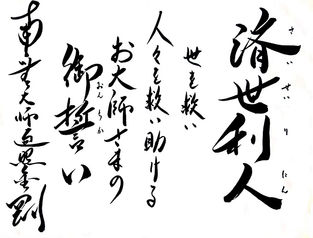 済世利人
さいせいりにん
世を救い
人々を救い助ける
お大師さまの
御誓い
おんちかい
南無大師遍照金剛